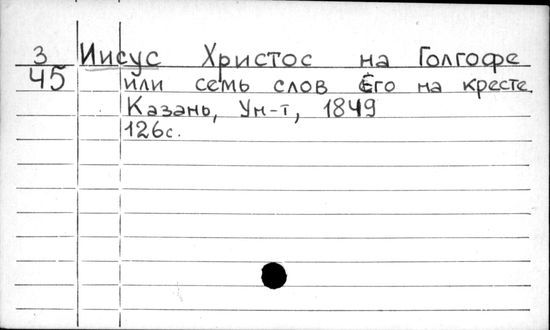 З Иисус Христос на Голгофе
45 или семь слов Его на кресте.
Казань, Ун-т, 1849
126с.